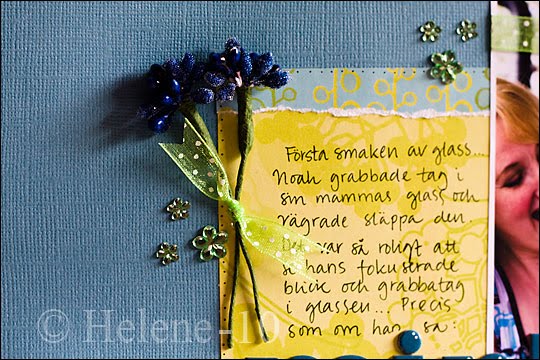 Första smaken av glass...
Noah grabbade tag i
sin mammas glass och
vägrade släppa den.
Det var så roligt att
se hans fokuserade
blick och grabbatag
i glassen... Precis
som om han sa:
© Helene-10